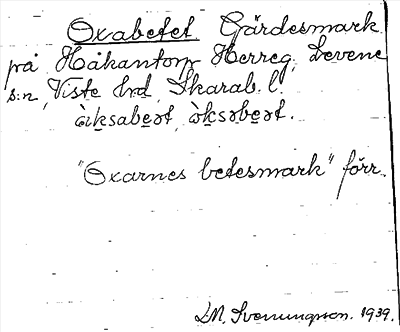 Oxabetet Gärdesmark
på Håkantorp Herreg. Levene
s:n, Viste hrd, Skarab. l.
"Oxarnes betesmark" förr.
LM. Svenungsson. 1939.